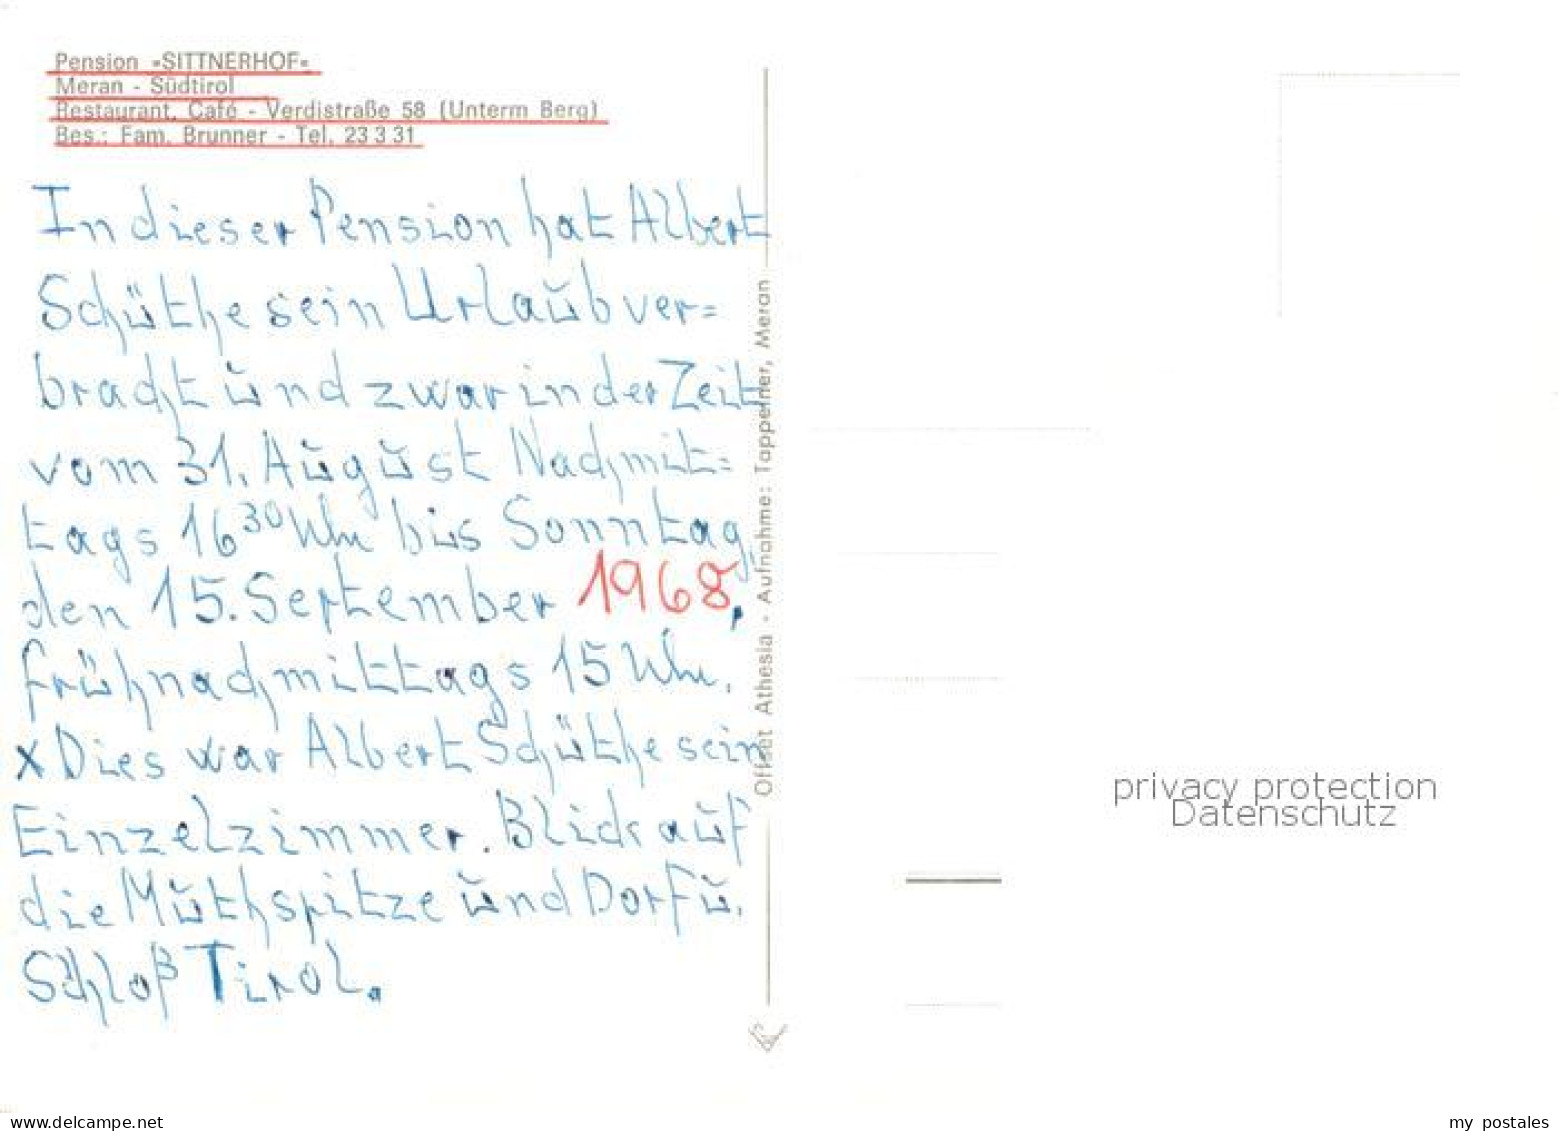 Pension »SITTNERHOF«
Meran - Südtirol
Restaurant, Café - Verdistraße 58 (Unterm Berg)
Bes.: Fam. Brunner - Tel. 23 3 31
In dieser Pension hat Albert
Schüthe sein Urlaub ver=
bracht und zwar in der Zeit
vom 31. August Nachmit=
tags 16³⁰ Uhr bis Sonntag,
den 15. September 1968,
frühnachmittags 15 Uhr.
x Dies war Albert Schüthe sein
Einzelzimmer. Blick auf
die Muthspitze und Dorf u.
Schloß Tirol.
Offset Athesia - Aufnahme: Tappeiner, Meran
privacy protection
Datenschutz
www.delcampe.net
my_postales